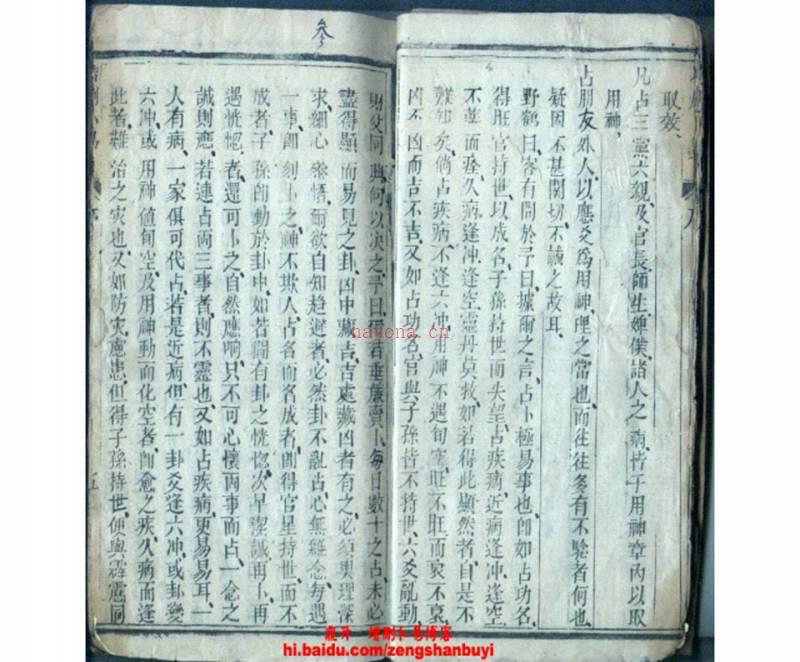 參
取效、
凡占三黨六親及官長師生婢僕諸人之病皆于用神章內以取
用神、
占朋友外人以應爻爲用神、理之當也、而往往多有不驗者何也、
疑因不甚関切、不誠之故耳、
野鶴曰、客有問於予曰、據爾之言、占卜極易事也、卽如占功名、
得旺官持世以成名、子孫持世而失望、占疾病、近病逢冲、逢空
不藥而痊、久病逢冲、逢空、靈丹莫救、如若得此顯然者、自是不
難知矣、倘占疾病、不逢六冲、用神不遇旬空、旺不旺而衰不衰、
凶不凶而吉不吉、又如占功名、官與子孫皆不持世、六爻亂動
財父同興、何以决之、予曰、
垂簾賣卜、每日數十之占、未必
盡得顯而易見之卦、凶中藏吉、吉處藏凶者有之、必須奧理深
求、細心叅悟、爾欲自知趋避者、必然卦不亂占、心無雜念、每遇
一事、卽刻卜之、神不欺人、占名而名成者、卽得官星持世、而不
成者、子孫卽動於卦中、如若間有卦之恍惚、次早潔誠再卜、再
遇恍惚、者還可卜之、自然應响、只不可心懷兩事而占、一念之
誠則應、若連占兩三事者、則不靈也、又如占疾病、更易易耳、一
人有病、一家俱可代占、若是近病、但有一卦爻逢六冲、或卦變
六冲、或用神値旬空、及用神動而化空者、卽愈之疾、久病而逢
此者、難治之灾也、又如防灾慮患、但得子孫持世、便與霹靂同
五
nayona.cn
hi.baidu.com/zengshanbuyi